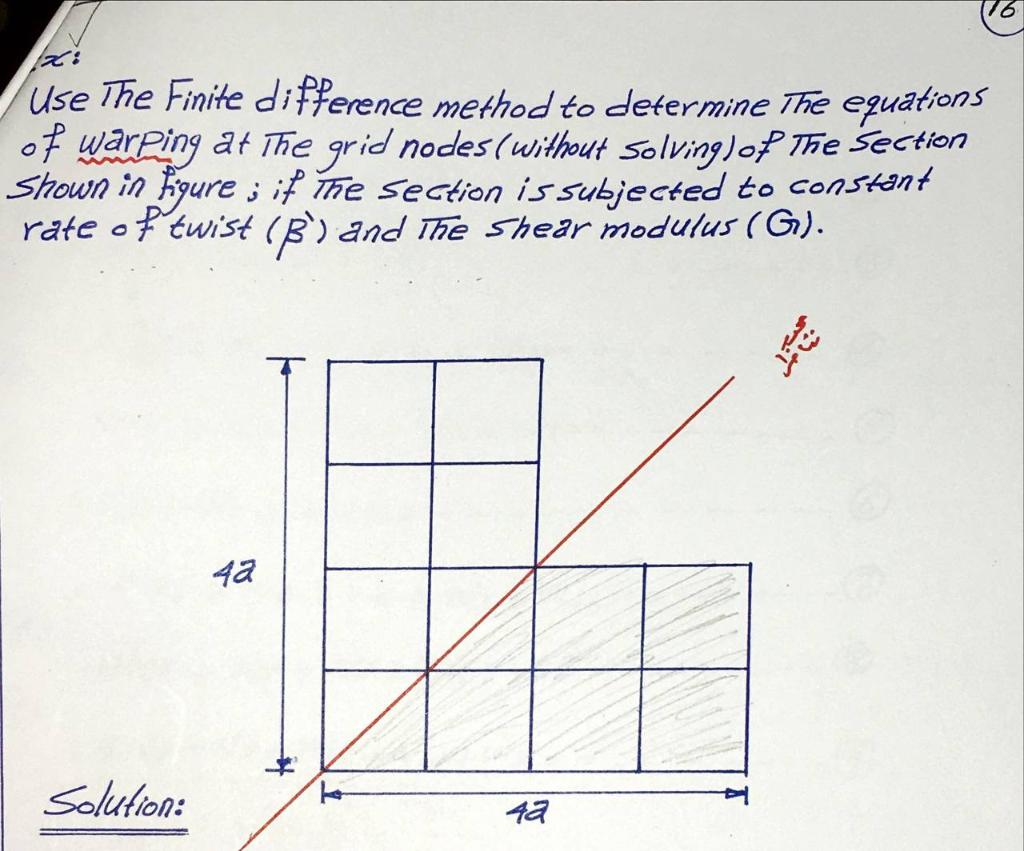 16
x:
Use The Finite difference method to determine The equations
of warping at The grid nodes (without solving) of The Section
Shown in figure ; if The section is subjected to constant
rate of twist (β`) and The shear modulus (G).
4a
4a
Solution: